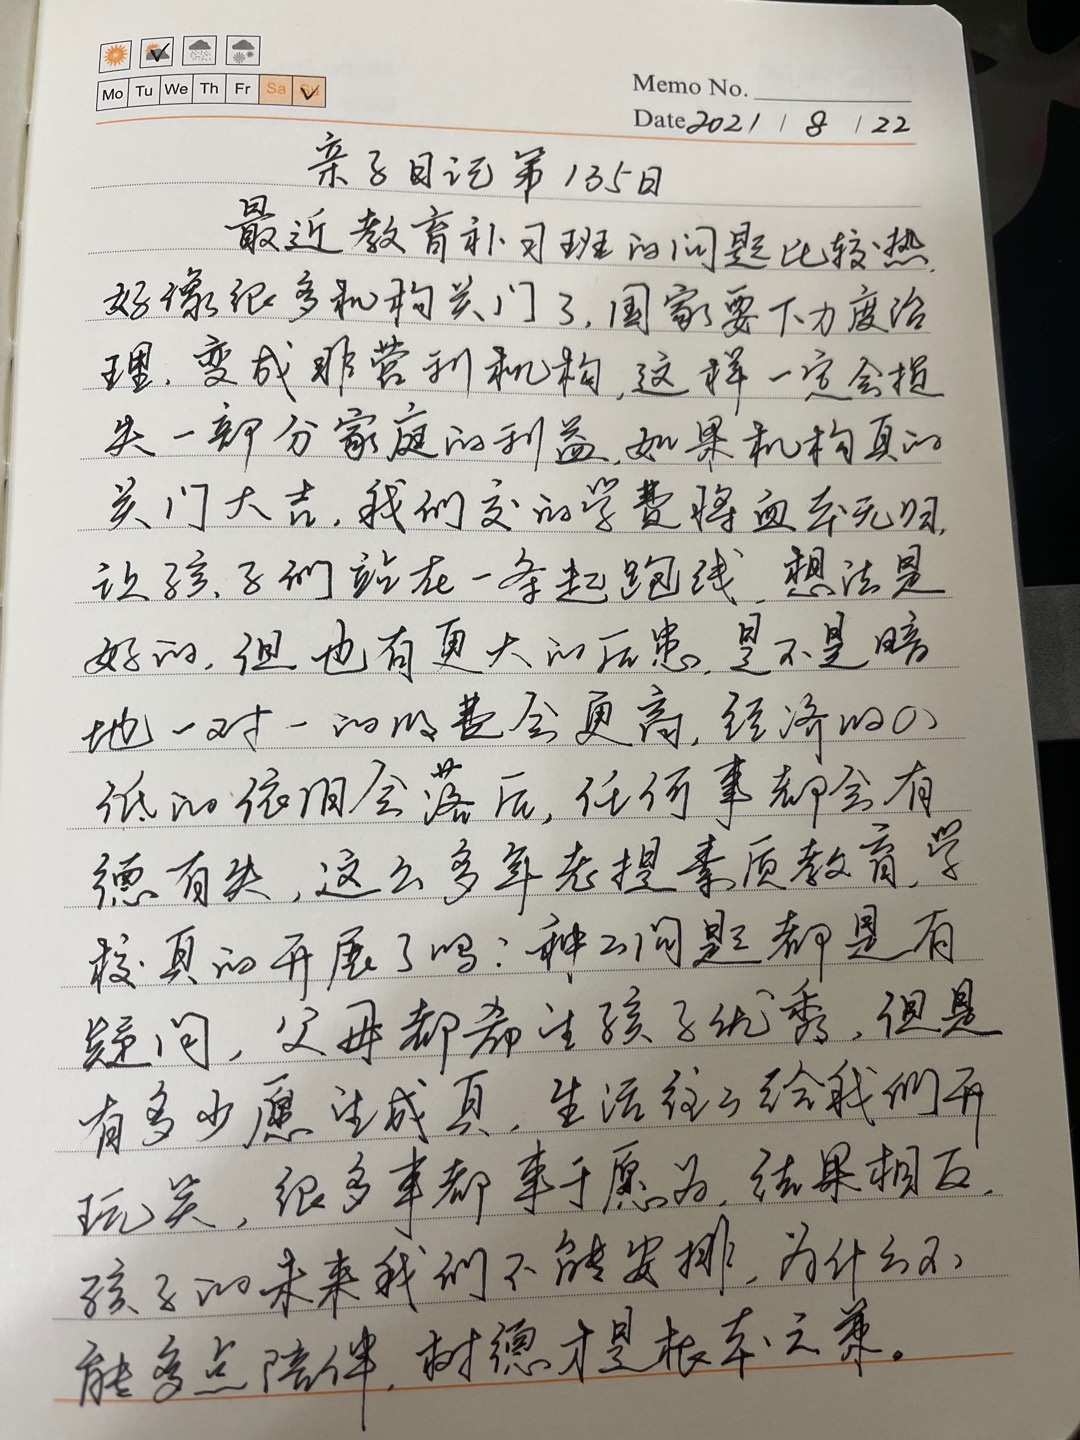 Mo Tu We Th Fr Sa Su
Memo No.
Date 2021 / 8 / 22
亲子日记第135日
最近教育补习班的问题比较热,
好像很多机构关门了,国家要下力度治
理,变成非营利机构,这样一定会损
失一部分家庭的利益,如果机构真的
关门大吉,我们交的学费将血本无归,
让孩子们站在一条起跑线,想法是
好的,但也有更大的后患,是不是暗
地一对一的收费会更高,经济的
低的依旧会落后,任何事都会有
德有失,这么多年老提素质教育,学
校真的开展了吗?种々问题都是有
疑问,父母都希望孩子优秀,但是
有多少愿望成真,生活往々给我们开
玩笑,很多事都事于愿为,结果相反,
孩子的未来我们不能安排,为什么不
能多点陪伴,树德才是根本之策。